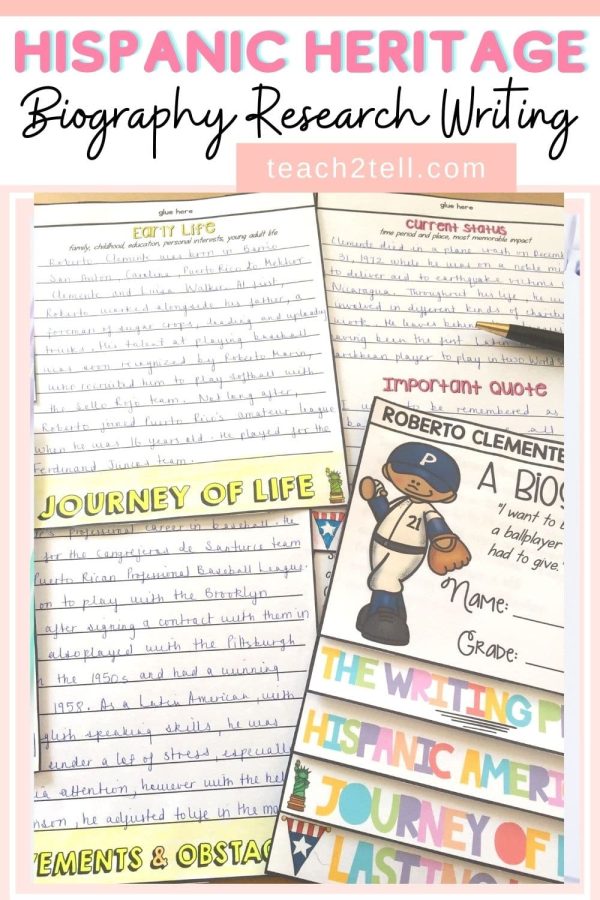 HISPANIC HERITAGE
Biography Research Writing
teach2tell.com
glue here
EARLY LIFE
family, childhood, education, personal interests, young adult life
Roberto Clemente was born in Barrio
San Anton, Carolina, Puerto Rico to Melchor
Clemente and Luisa Walker. At first,
Roberto worked alongside his father, a
foreman of sugar crops, loading and unloading
trucks. His talent at playing baseball
was soon recognized by Roberto Marin,
who recruited him to play softball with
the Sello Rojo team. Not long after,
Roberto joined Puerto Rico's amateur league
when he was 16 years old. He played for the
Ferdinand Juncos team.
JOURNEY OF LIFE
professional career in baseball. He
for the Cangrejeros de Santurce team
Puerto Rican Professional Baseball League.
on to play with the Brooklyn
after signing a contract with them in
also played with the Pittsburgh
the 1950s and had a winning
1958. As a Latin American, with
speaking skills, he was
under a lot of stress, especially
attention, however with the
he adjusted to life in the
VEMENTS & OBSTAC
glue here
Current Status
time period and place, most memorable impact
Clemente died in a plane crash on
31, 1972 while he was on a noble
to deliver aid to earthquake victims
Nicaragua. Throughout his life, he
involved in different kinds of
work. He leaves behind
having been the first Latin
player to play in two World
Important Quote
to be remembered as
all
ROBERTO CLEMENTE
A BIO
"I want to
a ballplayer
had to give."
P
21
Name:
Grade:
THE WRITING P
HISPANIC AMERI
JOURNEY OF L
LASTING